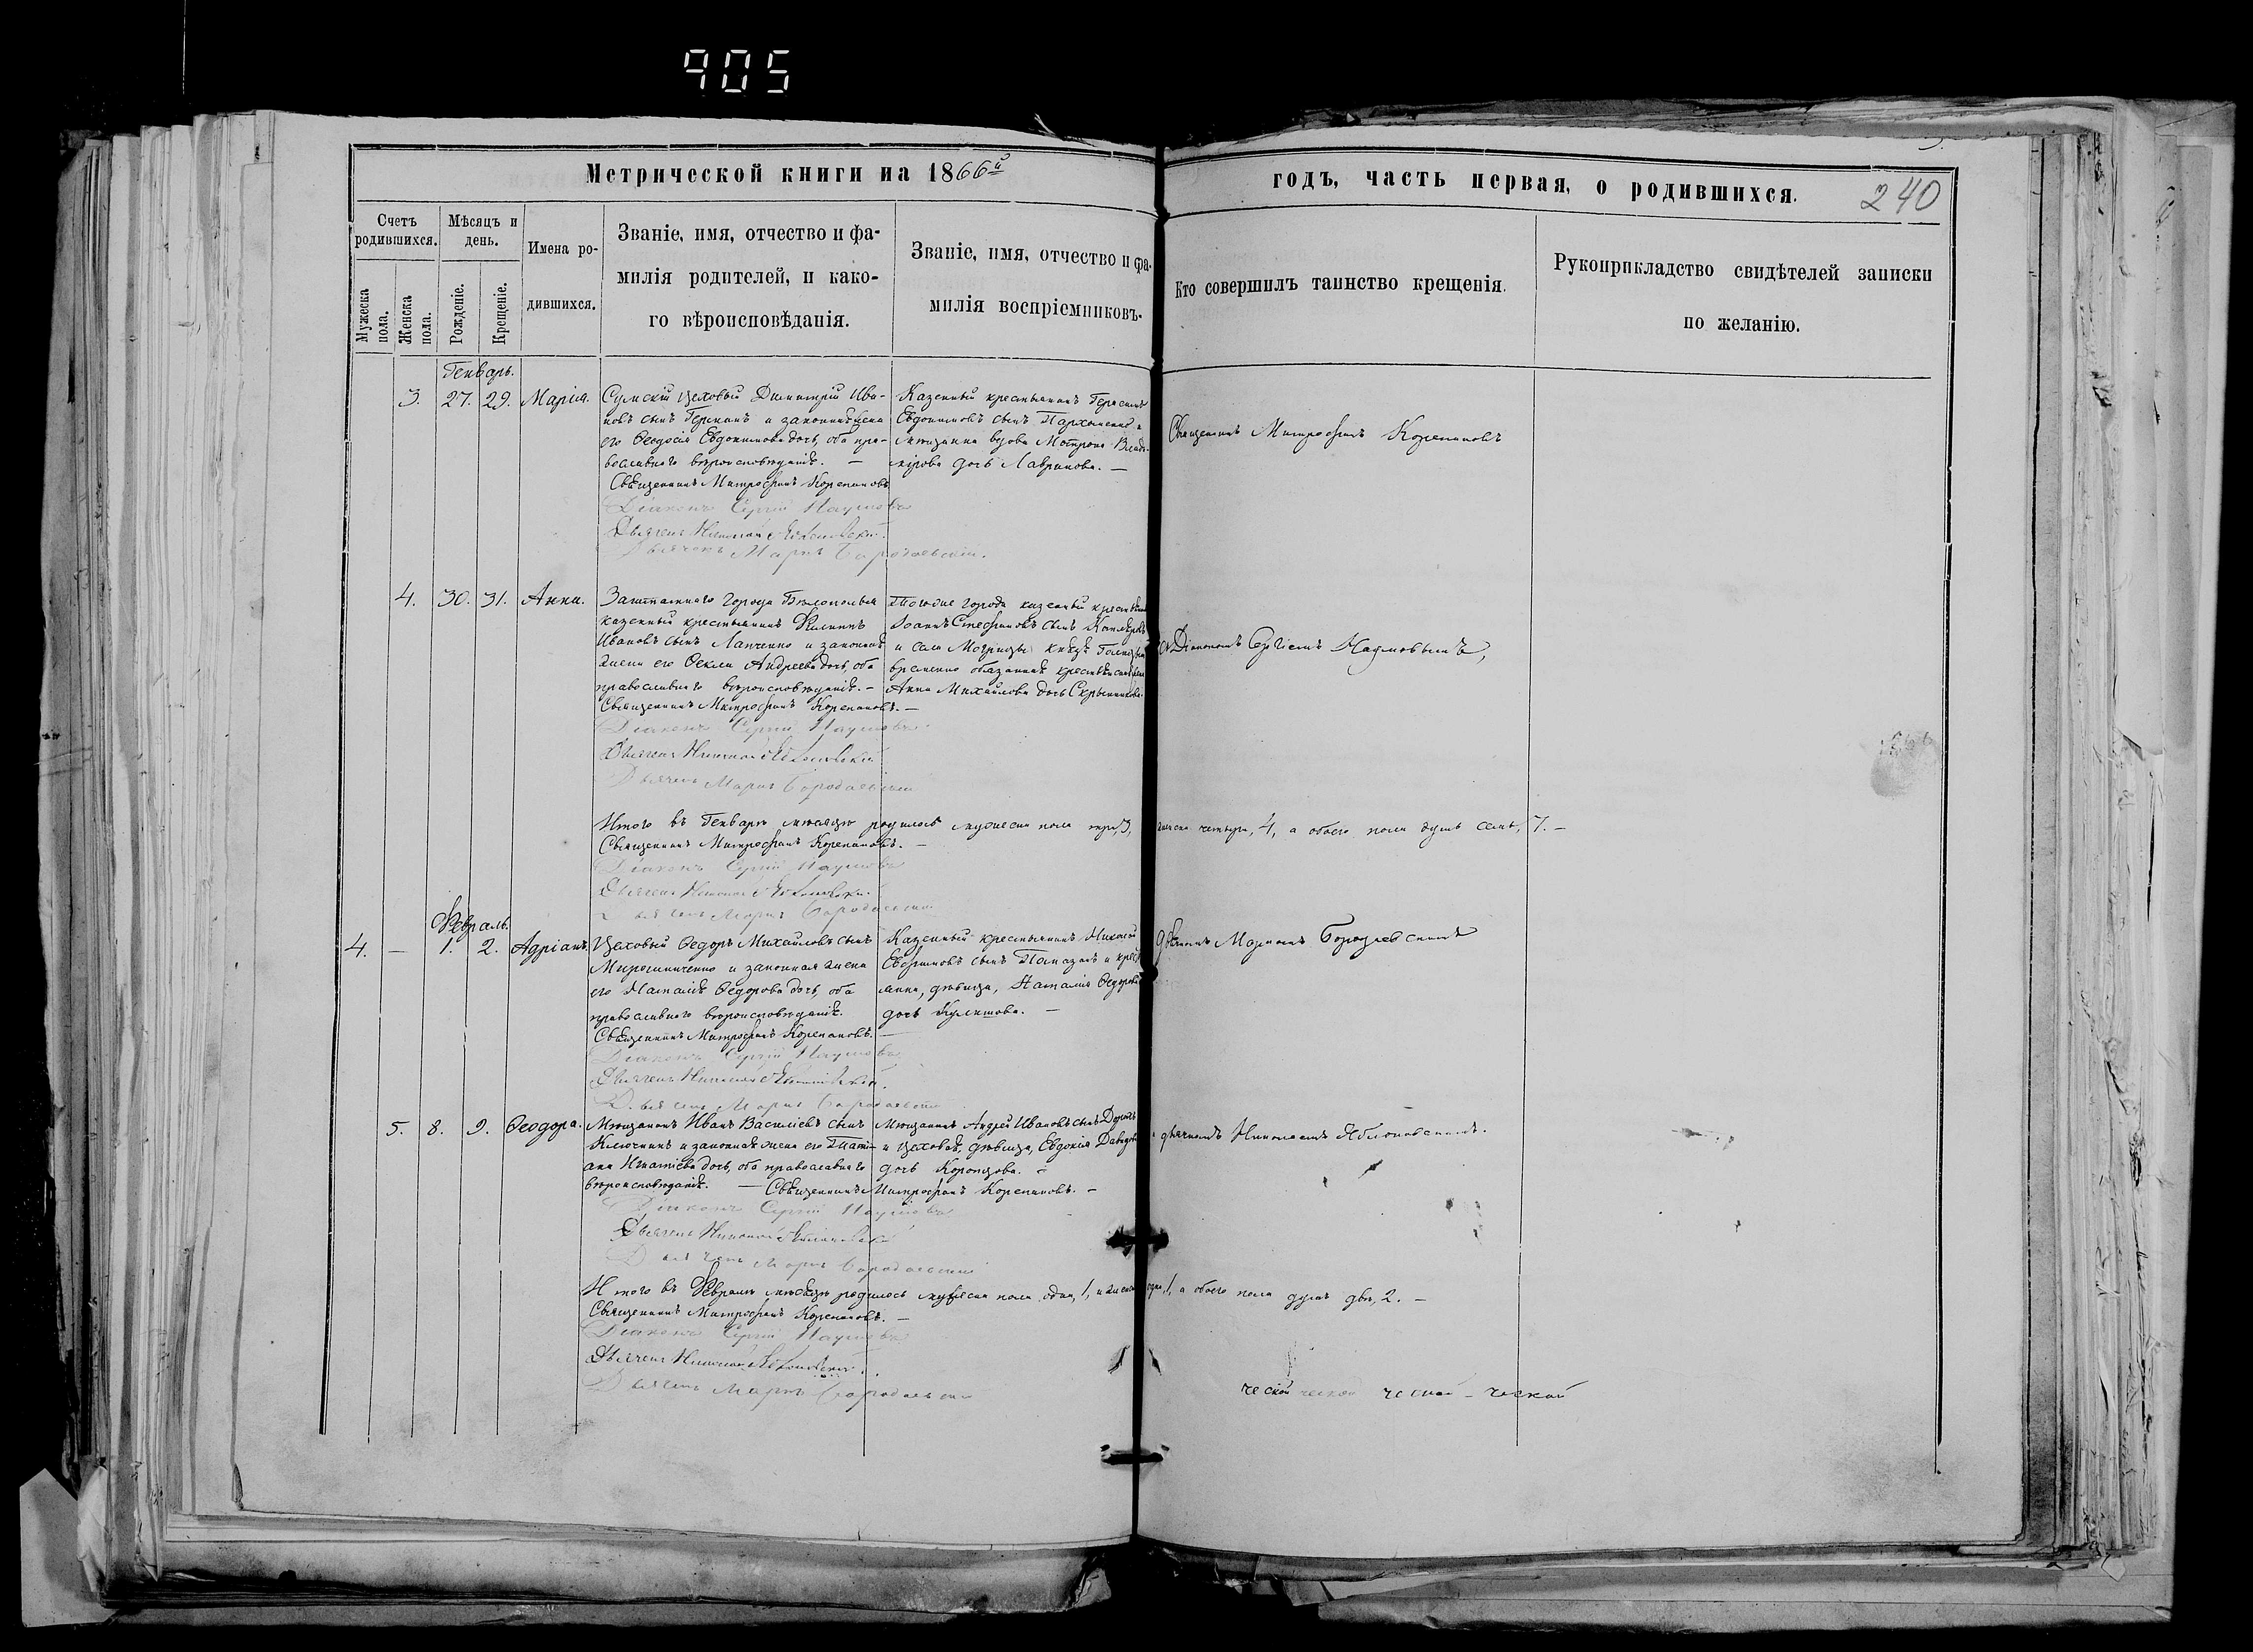 905
Метрической книги на 1866й
годъ, часть первая, о родившихся.
240
Счетъ родившихся.
Мѣсяцъ и день.
Имена родившихся.
Званіе, имя, отчество и фа-
милія родителей, и како-
го вѣроисповѣданія.
Званіе, имя, отчество и фа-
милія воспріемниковъ.
Кто совершилъ таинство крещенія.
Рукоприкладство свидѣтелей записки
по желанію.
Мужеска пола.
Женска пола.
Рожденіе.
Крещеніе.
Генварь.
3. 27. 29. Марія.
Сумскій цеховый Димитрій Ива-
новъ сынъ и законная жена
его Ѳеодосія Евдокимова дочь, оба пра-
вославного вѣроисповѣданія. —
Священникъ Митрофанъ Корепановъ
Діаконъ Сергій Наумовъ
Дьячекъ Николай Яблоновскій.
Дьячекъ Маркъ Бородаевскій.
Казенный крестьянинъ Герасимъ
Евдокимовъ сынъ Пархоменко и
мѣщанка вдова Матрона Влади-
мірова дочь Лавринова. —
Священникъ Митрофанъ Корепановъ
4. 30. 31. Анна.
Заштатного города Бѣлополья
казенный крестьянинъ Филиппъ
Ивановъ сынъ Лапченко и законная
жена его Ѳекла Андреева дочь, оба
православного вѣроисповѣданія. —
Священникъ Митрофанъ Корепановъ. —
Діаконъ Сергій Наумовъ
Дьячекъ Николай Яблоновскій
Дьячекъ Маркъ Бородаевскій
Тогоже города казенный крестьянинъ
Іоаннъ Стефановъ сынъ
и села Могрицы князя
временно обязанная крестьянская
Анна Михайлова дочь Скрынникова.
Діакономъ Сергіемъ Наумовымъ,
Итого въ Генварѣ мѣсяцѣ родилось мужеска пола три, 3, женска четыре, 4, а обоего пола душъ семь, 7. —
Священникъ Митрофанъ Корепановъ. —
Діаконъ Сергій Наумовъ
Дьячекъ Николай Яблоновскій
Дьячекъ Маркъ Бородаевскій
Февраль.
4. — 1. 2. Адріанъ.
Цеховый Ѳедоръ Михайловъ сынъ
Мирошниченко и законная жена
его Наталія Ѳедорова дочь, оба
православного вѣроисповѣданія.
Священникъ Митрофанъ Корепановъ. —
Діаконъ Сергій Наумовъ
Дьячекъ Николай Яблоновскій.
Дьячекъ Маркъ Бородаевскій
Казенный крестьянинъ Николай
сынъ и кресть-
янка, дѣвица, Наталія Ѳедорова
дочь Кулешова. —
дьячкомъ Маркомъ Бородаевскимъ
5. 8. 9. Ѳеодора.
Мѣщанинъ Иванъ Василіевъ сынъ
Ключникъ и законная жена его Тати-
ана Игнатіева дочь, оба православного
вѣроисповѣданія. — Священникъ Митрофанъ Корепановъ. —
Діаконъ Сергій Наумовъ
Дьячекъ Николай Яблоновскій
Дьячекъ Маркъ Бородаевскій
Мѣщанинъ Андрей Ивановъ сынъ
и цеховая, дѣвица, Евдокія Давидова
дочь
дьячкомъ Николаемъ Яблоновскимъ.
Итого въ Февралѣ мѣсяцѣ родилось мужеска пола одна, 1, и женска одна, 1, а обоего пола душъ двѣ, 2. —
Священникъ Митрофанъ Корепановъ. —
Діаконъ Сергій Наумовъ
Дьячекъ Николай Яблоновскій.
Дьячекъ Маркъ Бородаевскій
ческой ческой ческой - ческой